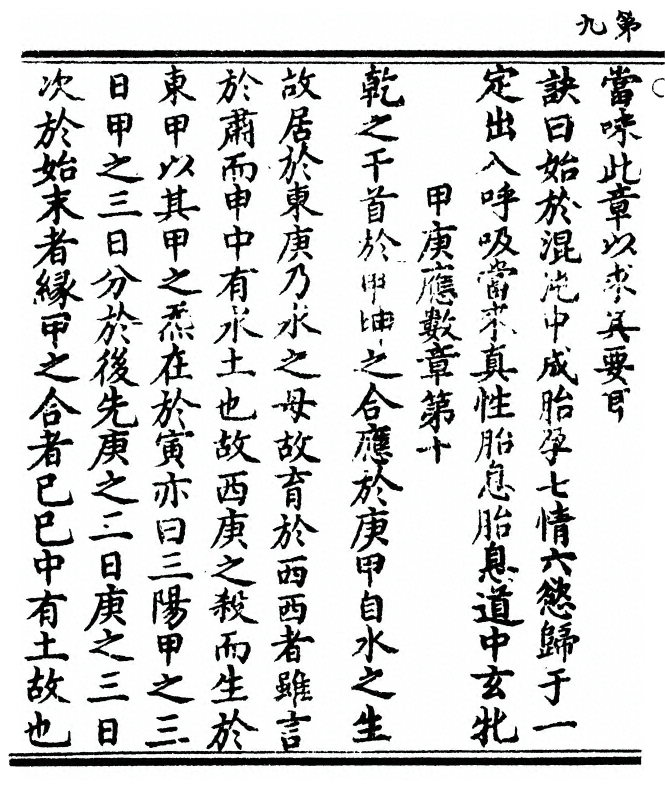 第九
當味此章以求其要曰
訣曰始於混沌中成胎孕七情六慾歸于一
定出入呼吸當求真性胎息胎息道中玄牝
甲庚應數章第十
乾之干首於甲坤之合應於庚甲自水之生
故居於東庚乃水之母故育於西西者雖言
於肅而申中有水土也故西庚之殺而生於
東甲以其甲之炁在於寅亦曰三陽甲之三
日甲之三日分於後先庚之二日庚之三日
次於始末者緣甲之合者巳巳中有土故也